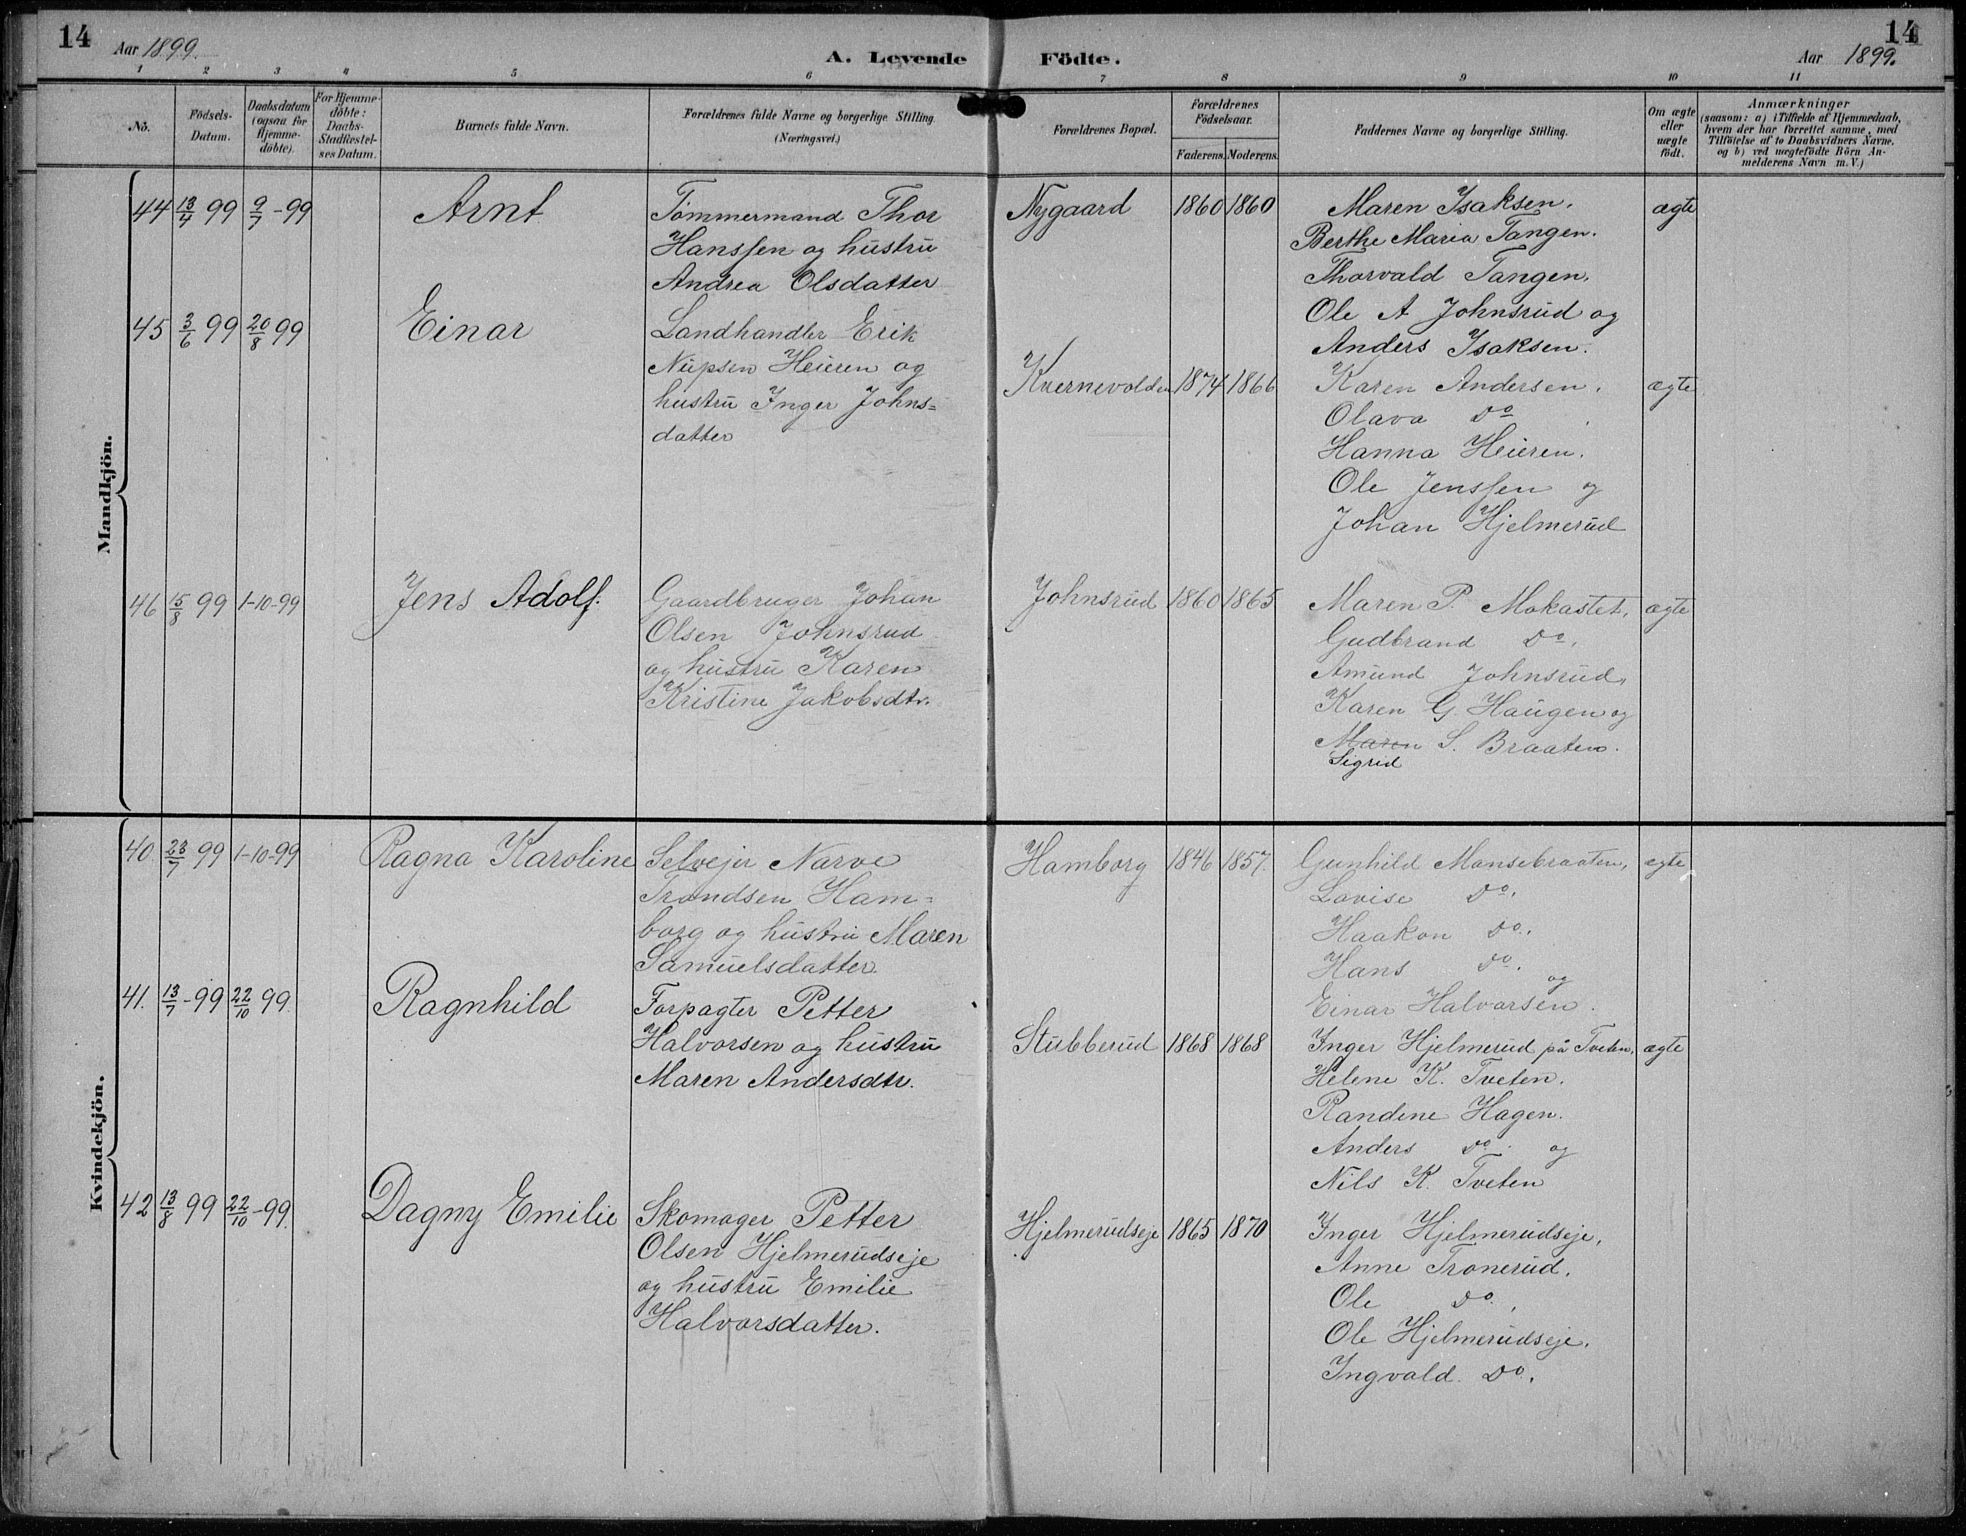 14
Aar 1899.
A. Levende Födte.
Aar 1899.
14
1 2 3 4 5 6 7 8 9 10 11
No.
Födsels-
Datum.
Daabsdatum
(ogsaa for
Hjemme-
döbte).
For Hjemme-
döbte:
Daabs-
Stadfæstel-
ses Datum.
Barnets fulde Navn.
Forældrenes fulde Navne og borgerlige Stilling.
(Næringsvei.)
Forældrenes Bopæl.
Forældrenes
Födselsaar.
Faderens. Moderens.
Faddernes Navne og borgerlige Stilling.
Om ægte
eller
uægte
födt.
Anmærkninger
(saasom: a) i Tilfælde af Hjemmedaab,
hvem der har forrettet samme, med
Tilföielse af to Daabsvidners Navne.
og b) ved uægtefödte Börn An-
melderens Navn m. V.)
Mandkjön.
44 13/4 99 9/7-99 Arnt
Tömmermand Thor
Hanssen og hustru
Andrea Olsdatter
Nygaard 1860 1860
Maren Isaksen.
Berthe Maria Tangen.
Thorvald Tangen.
Ole A Johnsrud og
Anders Isaksen.
ægte
45 3/6 99 20/8 99 Einar
Landhandler Erik
Nüpsen Heieren og
hustru Inger Johns=
datter
Kvernevolden 1874 1866
Karen Andersen.
Olava Do
Hanna Heieren.
Ole Jenssen og
Johan Hjelmerud
ægte
46 15/8 99 1-10-99 Jens Adolf.
Gaardbruger Johan
Olsen Johnsrud
og hustru Karen
Kristine Jakobsdtr.
Johnsrud 1860 1865
Maren P. Mokastet,
Gudbrand Do.
Amund Johnsrud,
Karen G. Haugen og
Maren S. Braaten.
Sigrid
ægte
Kvindekjön.
40. 23/7 99 1-10-99 Ragna Karoline
Selvejer Narve
Trondsen Ham=
borg og hustru Maren
Samuelsdatter.
Hamborg 1846 1857.
Gunhild Mansebraaten,
Lovise Do.
Haakon Do.
Hans Do. og
Einar Halvorsen.
ægte
41. 13/7-99 22/10 99. Ragnhild
Forpagter Petter
Halvorsen og hustru
Maren Andersdtr.
Stubberud 1868 1868
Inger Hjelmerud på Tveten,
Helene K. Tveten.
Randine Hagen.
Anders Do. og
Nils K. Tveten
ægte
42 13/8 99 22/10-99. Dagny Emilie
Skomager Petter
Olsen Hjelmerudseje
og hustru Emilie
Halvorsdatter.
Hjelmerudseje 1865 1870
Inger Hjelmerudseje,
Anne Tronerud.
Ole Do.,
Ole Hjelmerudseje.
Ingvald. Do.